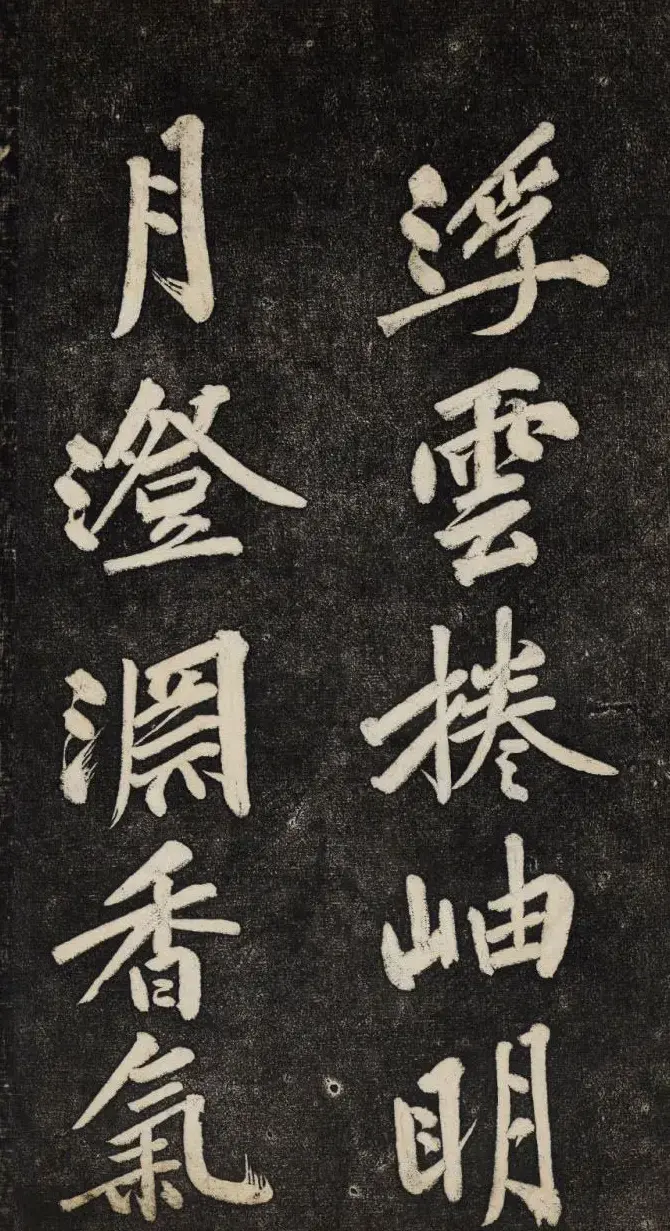 浮雲捲岫明
月澄淵香氣